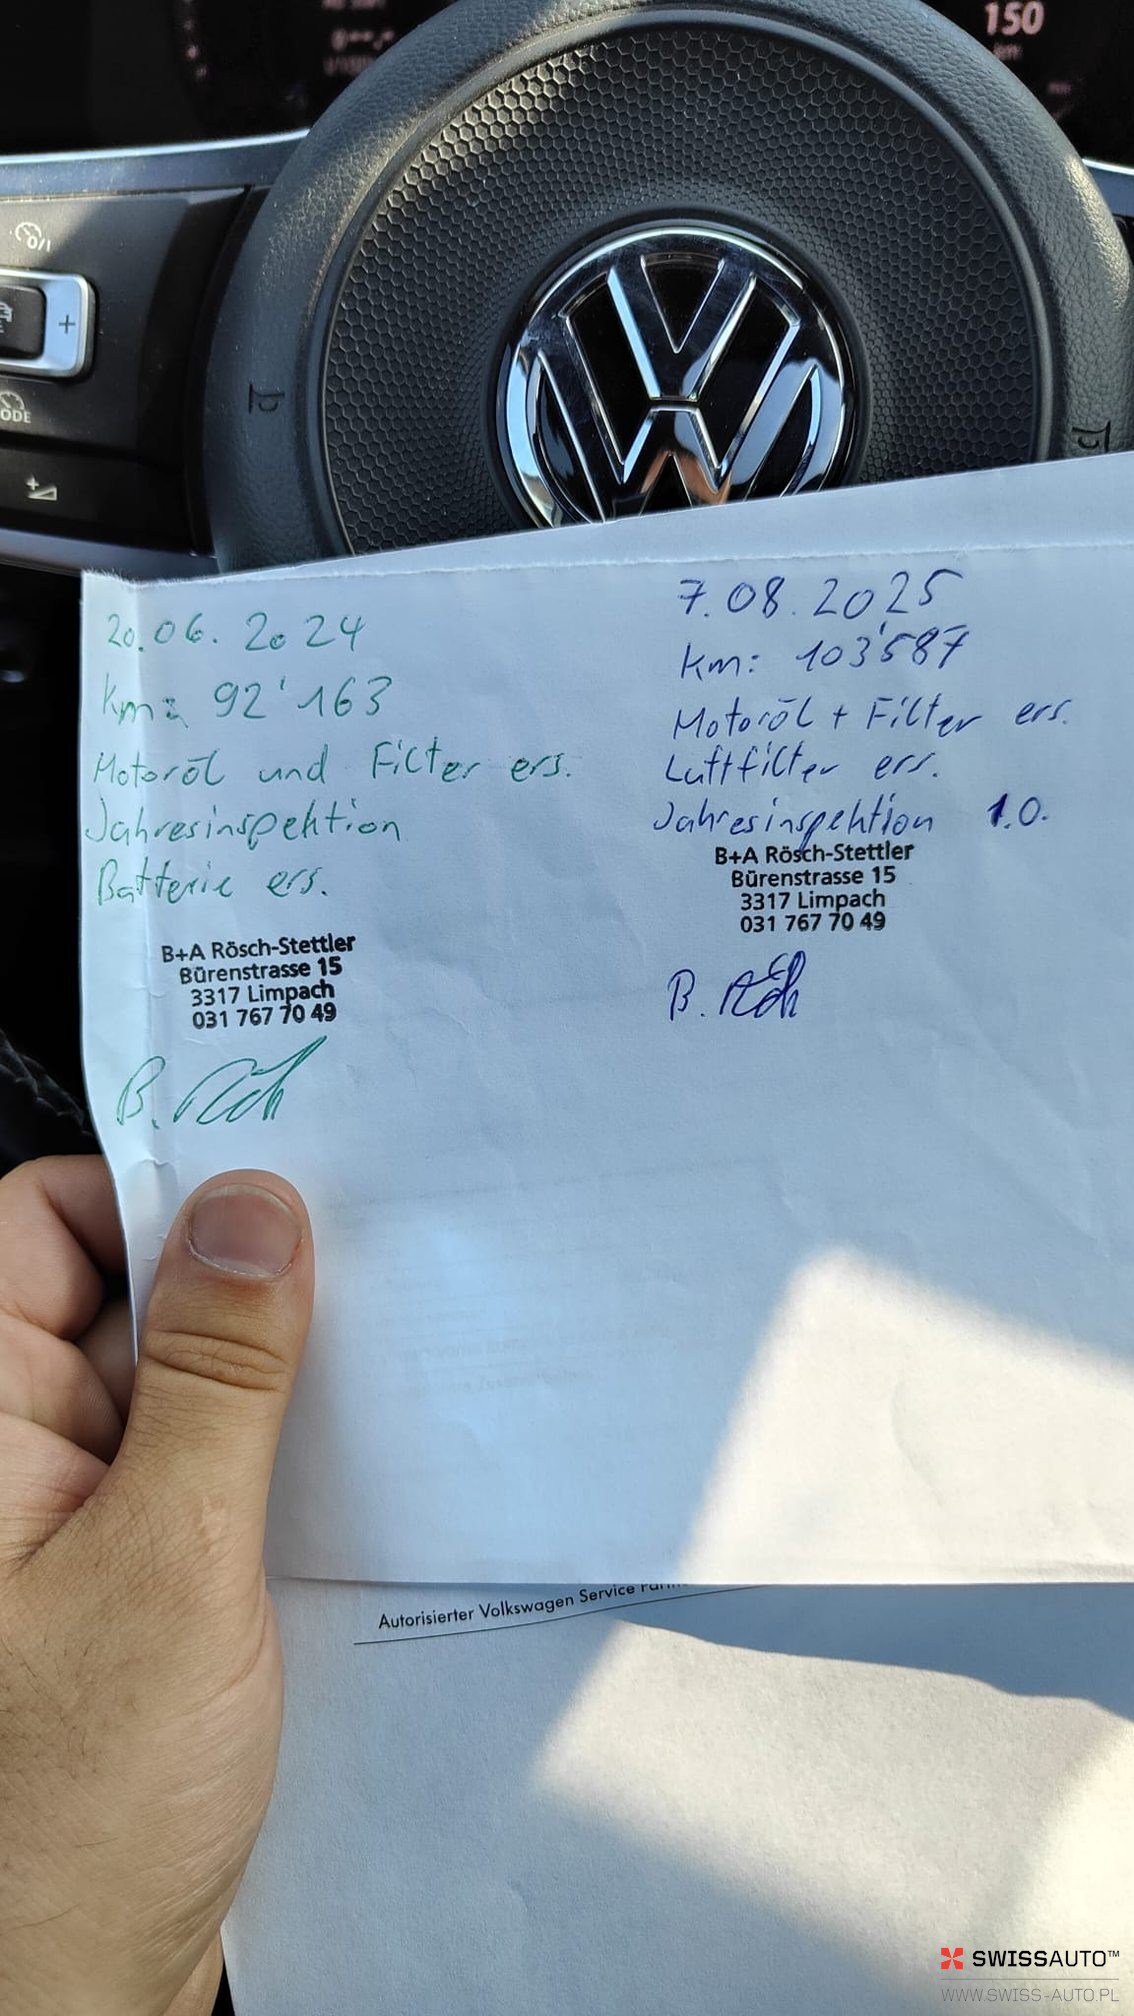 150
km
+
20.06.2024
km: 92'163
Motoröl und Filter ers.
Jahresinspektion
Batterie ers.
B+A Rösch-Stettler
Bürenstrasse 15
3317 Limpach
031 767 70 49
7.08.2025
km: 103'587
Motoröl + Filter ers.
Luftfilter ers.
Jahresinspektion 1.0.
B+A Rösch-Stettler
Bürenstrasse 15
3317 Limpach
031 767 70 49
Autorisierter Volkswagen Service
SWISSAUTO™
WWW.SWISS-AUTO.PL